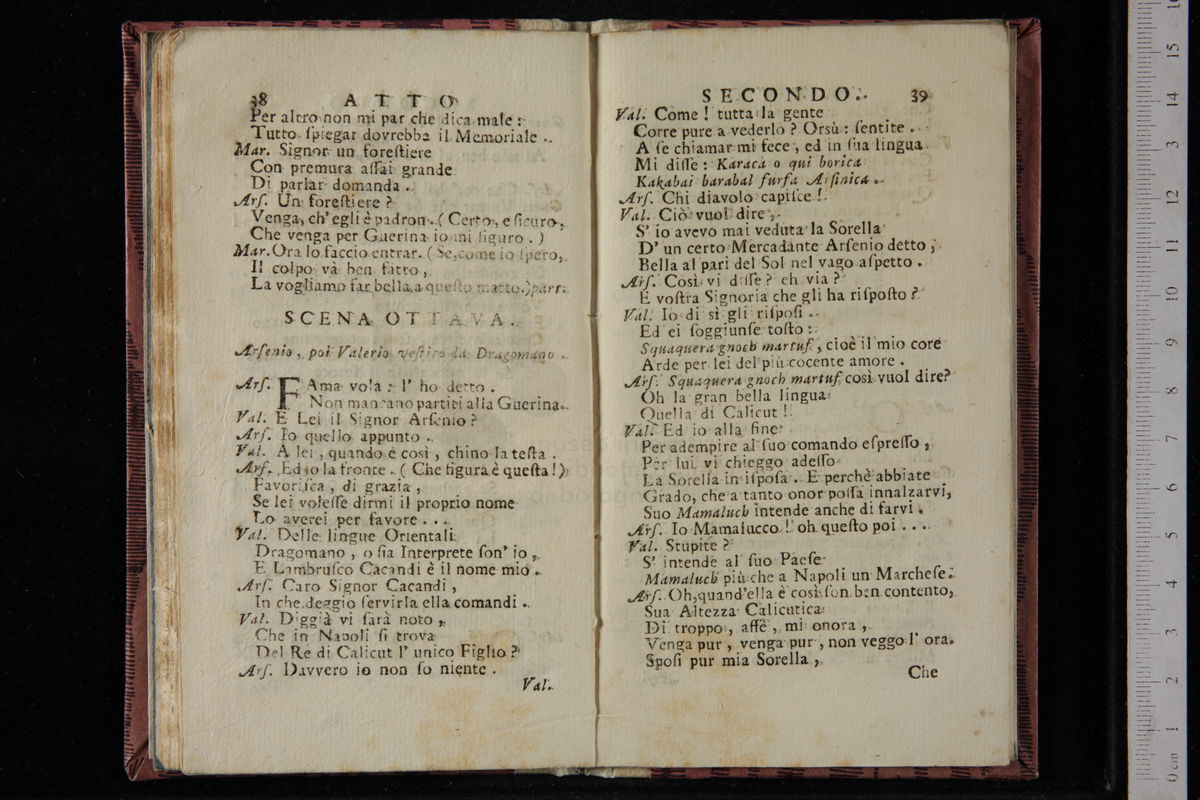 38 ATTO
Per altro non mi par che dica male :
Tutto ſpiegar dovrebbe il Memoriale .
Mar. Signor un foreſtiere
Con premura aſſai grande
Di parlar domanda .
Arſ. Un foreſtiere ?
Venga, ch' egli è padron . ( Certo, e ſicuro,
Che venga per Guerina io mi figuro . )
Mar. Ora lo faccio entrar. ( Se, come io ſpero,
Il colpo và ben fatto ,
La vogliamo far bella a queſto matto. ) parr.
SCENA OTTAVA.
Arſenio , poi Valerio veſtito da Dragomano .
Arſ. FAma vola : l' ho detto .
Non mancano partiti alla Guerina.
Val. E Lei il Signor Arſenio ?
Arſ. Io quello appunto .
Val. A lei , quando è così , chino la teſta .
Arſ. Ed io la fronte . ( Che figura è queſta ! )
Favoriſca , di grazia ,
Se lei voleſſe dirmi il proprio nome
Lo averei per favore . . .
Val. Delle lingue Orientali
Dragomano , o ſia Interprete ſon' io ,
E Lambruſco Cacandi è il nome mio .
Arſ. Caro Signor Cacandi ,
In che deggio ſervirla ella comandi .
Val. Diggià vi ſarà noto ,
Che in Napoli ſi trova
Del Re di Calicut l' unico Figlio ?
Arſ. Davvero io non ſo niente .
Val.
SECONDO. 39
Val. Come ! tutta la gente
Corre pure a vederlo ? Orsù : ſentite .
A ſe chiamar mi fece , ed in ſua lingua
Mi diſſe : Karaca o qui borica
Kakabai barabal furfa Aiſinica .
Arſ. Chi diavolo capiſce !
Val. Ciò vuol dire ,
S' io avevo mai veduta la Sorella
D' un certo Mercadante Arſenio detto ,
Bella al pari del Sol nel vago aſpetto .
Arſ. Così vi diſſe ? eh via ?
E voſtra Signoria che gli ha riſpoſto ?
Val. Io di sì gli riſpoſi .
Ed ei ſoggiunſe toſto :
Squaquera gnoch martuf , cioè il mio core
Arde per lei del più cocente amore .
Arſ. Squaquera gnoch martuf così vuol dire?
Oh la gran bella lingua
Quella di Calicut !
Val. Ed io alla fine
Per adempire al ſuo comando eſpreſſo ,
Per lui vi chieggo adeſſo
La Sorella in iſpoſa . E perchè abbiate
Grado, che a tanto onor poſſa innalzarvi,
Suo Mamaluch intende anche di farvi .
Arſ. Io Mamalucco ! oh queſto poi . . .
Val. Stupite ?
S' intende al ſuo Paeſe
Mamaluch più che a Napoli un Marcheſe.
Arſ. Oh, quand'ella è così ſon ben contento,
Sua Altezza Calicutica
Di troppo , affè , mi onora ,
Venga pur , venga pur , non veggo l' ora.
Spoſi pur mia Sorella ,
Che